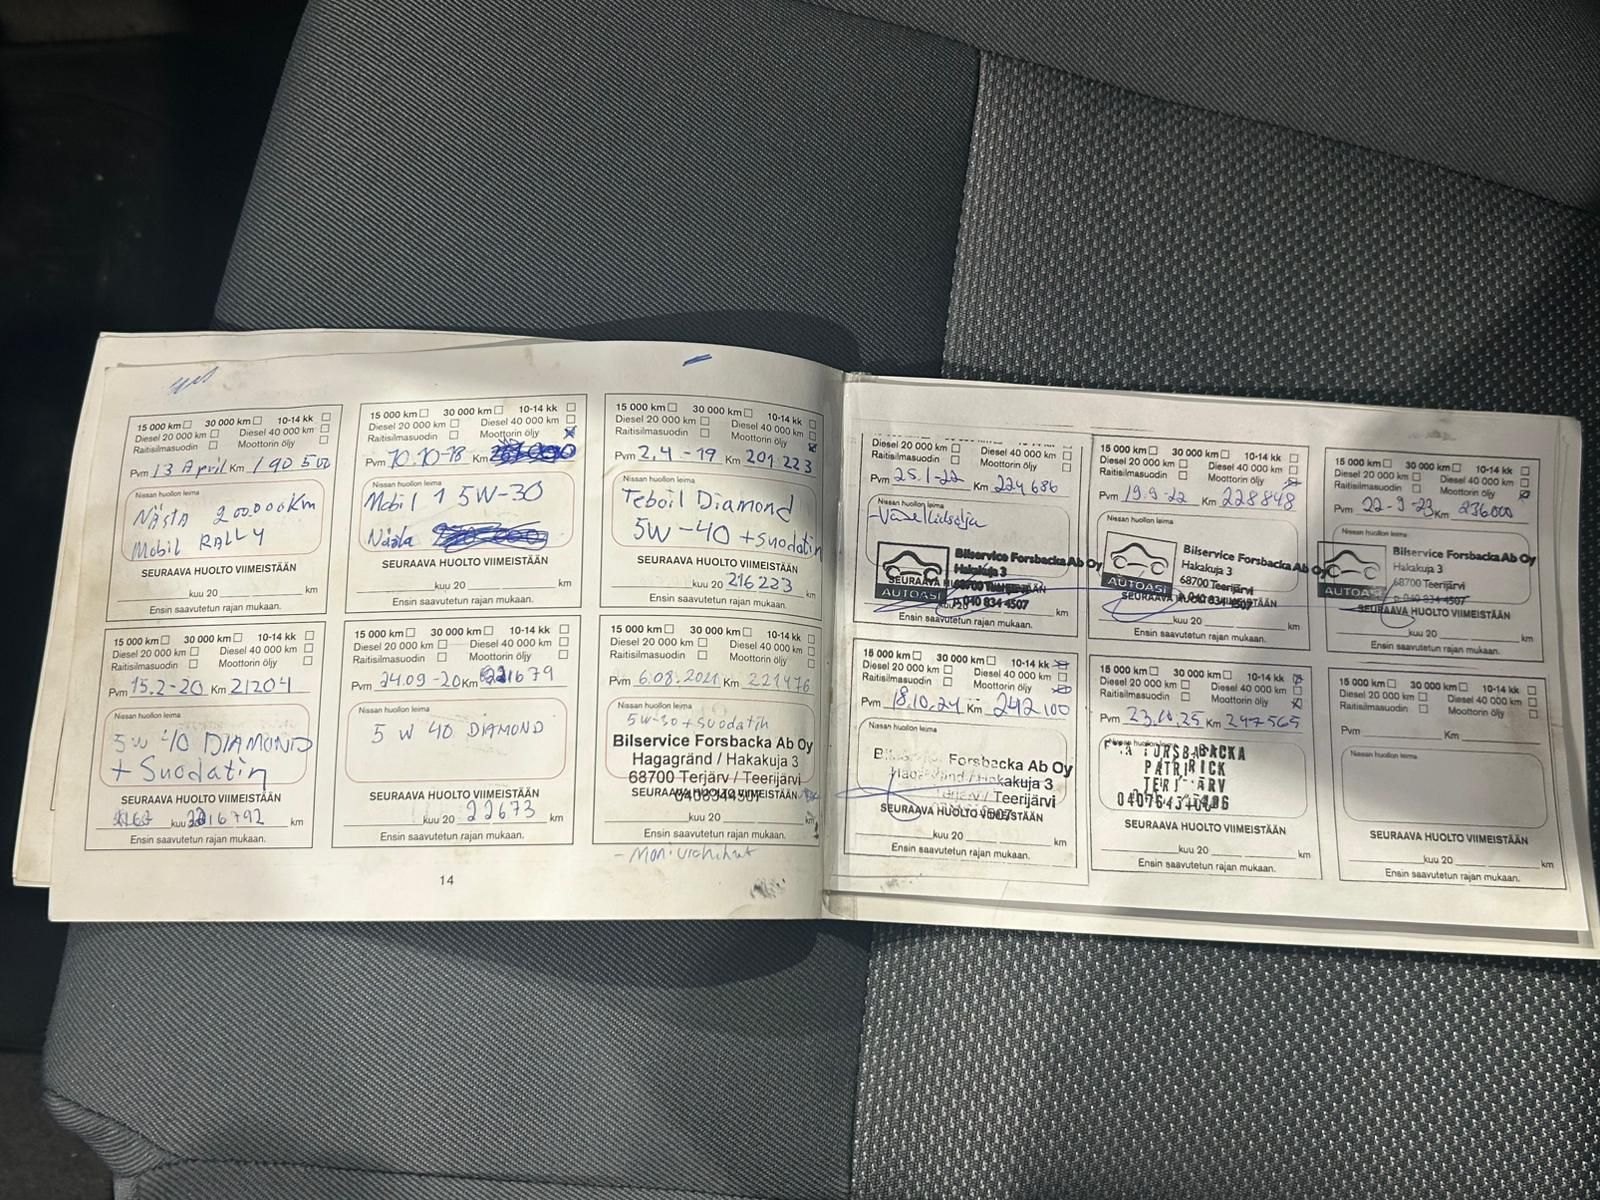 15 000 km 30 000 km 10-14 kk
Diesel 20 000 km Diesel 40 000 km
Raitisilmasuodin Moottorin öljy
Pvm 13 April Km 190 500
Nissan huollon leima
Nästa 200.000Km
Mobil RALLY
SEURAAVA HUOLTO VIIMEISTÄÄN
kuu 20 km
Ensin saavutetun rajan mukaan.
15 000 km 30 000 km 10-14 kk
Diesel 20 000 km Diesel 40 000 km
Raitisilmasuodin Moottorin öljy
Pvm 10.10-18 Km
Nissan huollon leima
Mobil 1 5W-30
Nästa
SEURAAVA HUOLTO VIIMEISTÄÄN
kuu 20 km
Ensin saavutetun rajan mukaan.
15 000 km 30 000 km 10-14 kk
Diesel 20 000 km Diesel 40 000 km
Raitisilmasuodin Moottorin öljy
Pvm 2.4-19 Km 201 223
Nissan huollon leima
Teboil Diamond
5W-40 + suodatin
SEURAAVA HUOLTO VIIMEISTÄÄN
kuu 20 216223 km
Ensin saavutetun rajan mukaan.
15 000 km 30 000 km 10-14 kk
Diesel 20 000 km Diesel 40 000 km
Raitisilmasuodin Moottorin öljy
Pvm 15.2-20 Km 212041
Nissan huollon leima
5W 40 DIAMOND
+ Suodatin
SEURAAVA HUOLTO VIIMEISTÄÄN
kuu km
Ensin saavutetun rajan mukaan.
15 000 km 30 000 km 10-14 kk
Diesel 20 000 km Diesel 40 000 km
Raitisilmasuodin Moottorin öljy
Pvm 24.09-20 Km
Nissan huollon leima
5 W 40 DIAMOND
SEURAAVA HUOLTO VIIMEISTÄÄN
kuu 20 22673 km
Ensin saavutetun rajan mukaan.
15 000 km 30 000 km 10-14 kk
Diesel 20 000 km Diesel 40 000 km
Raitisilmasuodin Moottorin öljy
Pvm 6.08.2021 Km 221476
Nissan huollon leima
5w-30 + Suodatin
Bilservice Forsbacka Ab Oy
Hagagränd / Hakakuja 3
68700 Terjärv / Teerijärvi
0408344507
SEURAAVA HUOLTO VIIMEISTÄÄN
kuu 20 km
Ensin saavutetun rajan mukaan.
14
30 000 km
Diesel 20 000 km Diesel 40 000 km
Raitisilmasuodin Moottorin öljy
Pvm 25.1-22 Km 224 686
Nissan huollon leima
AUTOASI
Bilservice Forsbacka Ab Oy
Hakakuja 3
68700 Teerijärvi
p. 040 834 4507
SEURAAVA HUOLTO VIIMEISTÄÄN
kuu 20 km
Ensin saavutetun rajan mukaan.
15 000 km 30 000 km 10-14 kk
Diesel 20 000 km Diesel 40 000 km
Raitisilmasuodin Moottorin öljy
Pvm 19.9-22 Km 228848
Nissan huollon leima
AUTOASI
Bilservice Forsbacka Ab Oy
Hakakuja 3
68700 Teerijärvi
p. 040 834 4507
SEURAAVA HUOLTO VIIMEISTÄÄN
kuu 20 km
Ensin saavutetun rajan mukaan.
15 000 km 30 000 km 10-14 kk
Diesel 20 000 km Diesel 40 000 km
Raitisilmasuodin Moottorin öljy
Pvm 22-9-23 Km 236000
Nissan huollon leima
AUTOASI
Bilservice Forsbacka Ab Oy
Hakakuja 3
68700 Teerijärvi
p. 040 834 4507
SEURAAVA HUOLTO VIIMEISTÄÄN
kuu 20 km
Ensin saavutetun rajan mukaan.
15 000 km 30 000 km 10-14 kk
Diesel 20 000 km Diesel 40 000 km
Raitisilmasuodin Moottorin öljy
Pvm 18.10.24 Km 242 100
Nissan huollon leima
Bilservice Forsbacka Ab Oy
Hagagränd / Hakakuja 3
Terjärv / Teerijärvi
SEURAAVA HUOLTO VIIMEISTÄÄN
kuu 20 km
Ensin saavutetun rajan mukaan.
15 000 km 30 000 km 10-14 kk
Diesel 20 000 km Diesel 40 000 km
Raitisilmasuodin Moottorin öljy
Pvm 23.10.25 Km 247565
Nissan huollon leima
FORSBACKA
PATRICK
TERJÄRV
SEURAAVA HUOLTO VIIMEISTÄÄN
kuu 20 km
Ensin saavutetun rajan mukaan.
15 000 km 30 000 km 10-14 kk
Diesel 20 000 km Diesel 40 000 km
Raitisilmasuodin Moottorin öljy
Pvm Km
Nissan huollon leima
SEURAAVA HUOLTO VIIMEISTÄÄN
kuu 20 km
Ensin saavutetun rajan mukaan.